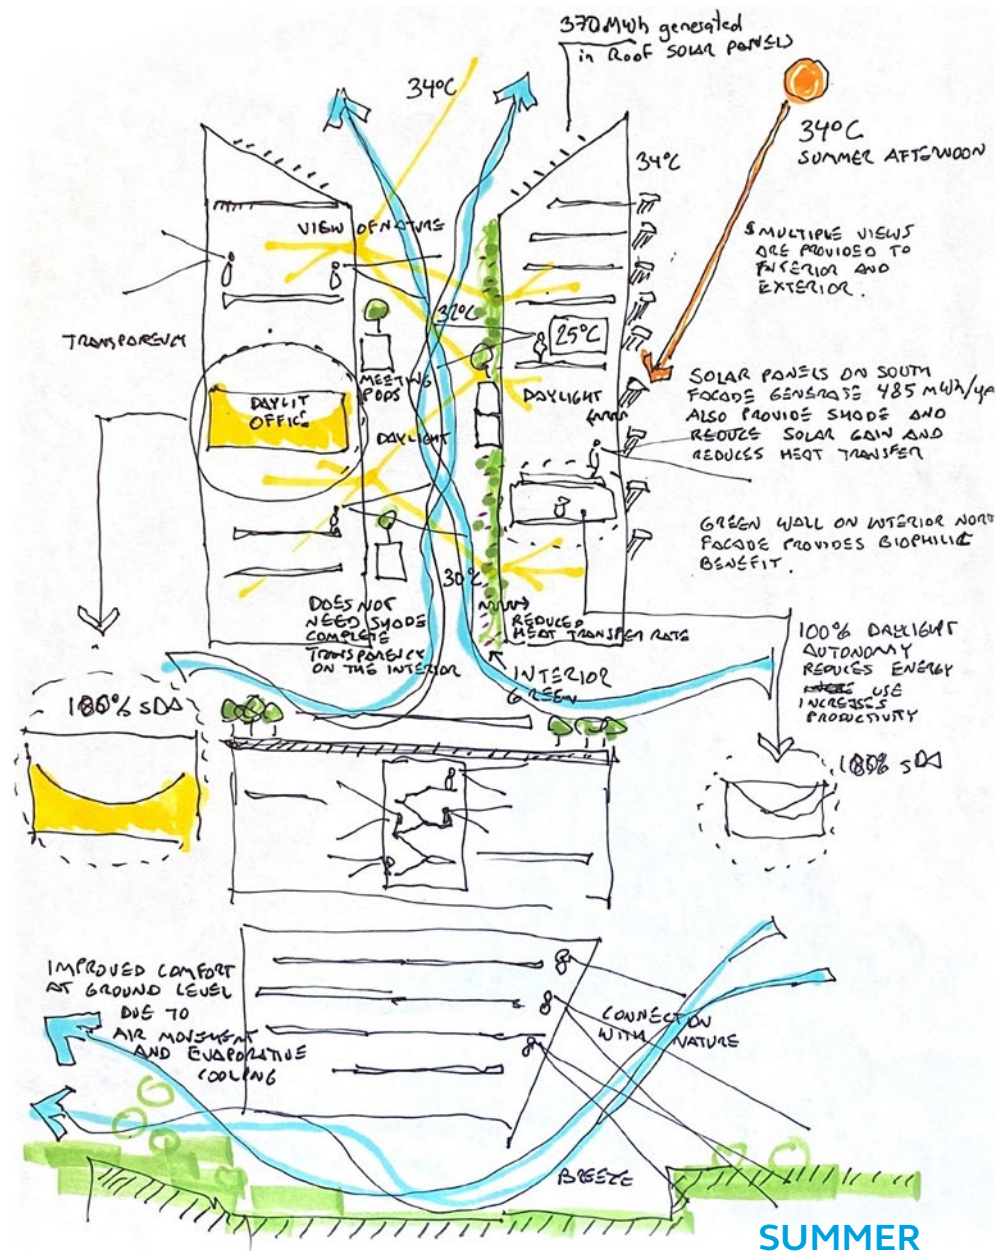 370MWh generated
in ROOF SOLAR PANELS
34°C
34°C
SUMMER AFTERNOON
34°C
VIEW OF NATURE
MULTIPLE VIEWS
ARE PROVIDED TO
INTERIOR AND
EXTERIOR.
32°C
25°C
TRANSPARENCY
MEETING
PODS
DAYLIT
OFFICE
DAYLIGHT
DAYLIGHT
SOLAR PANELS ON SOUTH
FACADE GENERATE 485 MWh/yr
ALSO PROVIDE SHADE AND
REDUCE SOLAR GAIN AND
REDUCES HEAT TRANSFER
GREEN WALL ON INTERIOR NORT
FACADE PROVIDES BIOPHILIC
BENEFIT.
30°C
DOES NOT
NEED SHADE
COMPLETE
TRANSPARENCY
ON THE INTERIOR
REDUCED
HEAT TRANSFER RATE
INTERIOR
GREEN
100% DAYLIGHT
AUTONOMY
REDUCES ENERGY
USE
INCREASES
PRODUCTIVITY
100% sDA
100% sDA
IMPROVED COMFORT
AT GROUND LEVEL
DUE TO
AIR MOVEMENT
AND EVAPORATIVE
COOLING
CONNECTION
WITH NATURE
BREEZE
SUMMER